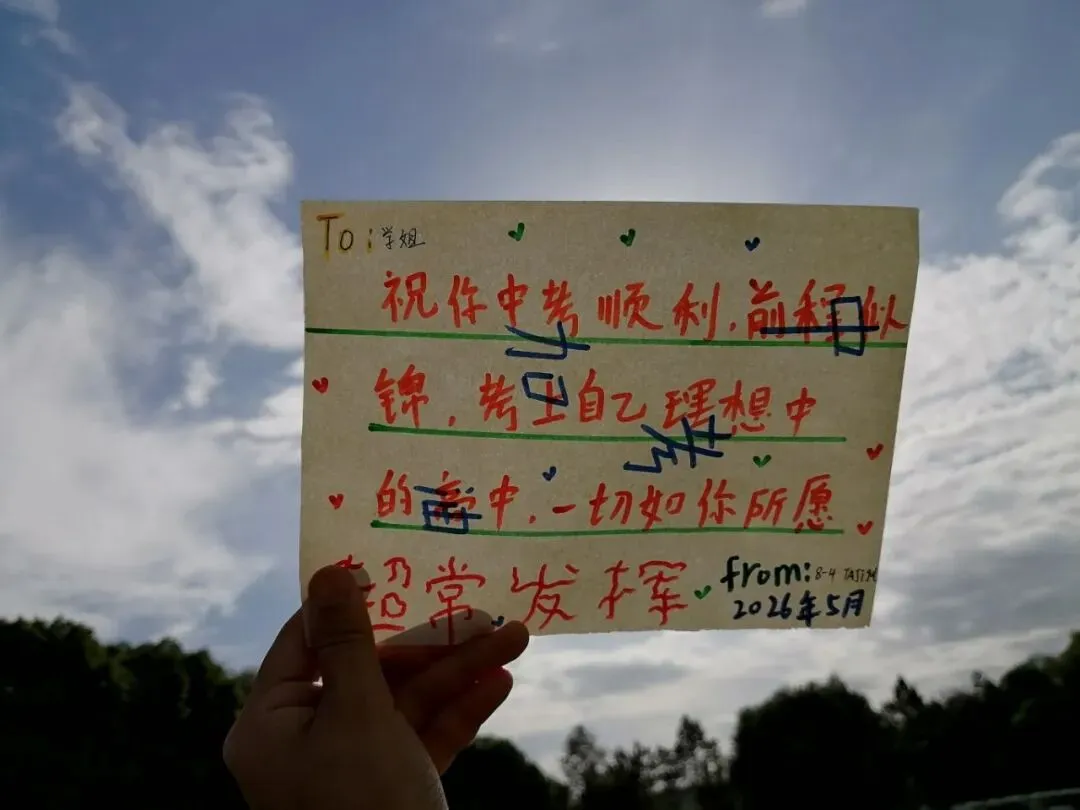 To:学姐
祝你中考顺利,前程似
锦,考上自己理想中
的高中,一切如你所愿
超常发挥
from:8-4
2026年5月